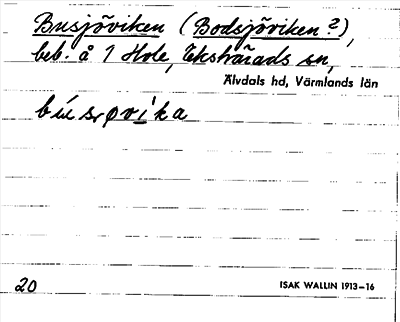 Busjöviken (Bodsjöviken ?),
beb. å 1 Hole, Ekshärads sn,
Älvdals hd, Värmlands län
20
ISAK WALLIN 1913–16